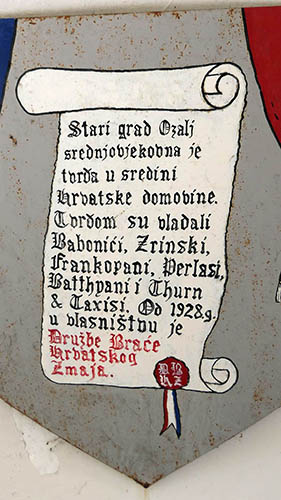 Stari grad Ozalj
srednjovjekovna je
tvrđa u sredini
Hrvatske domovine.
Tvrđom su vladali
Babonići, Zrinski,
Frankopani, Perlasi,
Batthyani i Thurn
& Taxisi. Od 1928.g.
u vlasništvu je
Družbe Braće
Hrvatskog
Zmaja.
D B
H Z